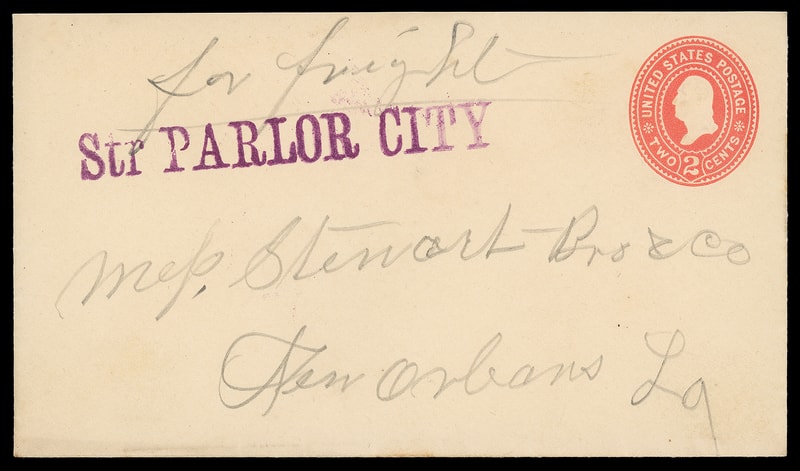 for freight
Str PARLOR CITY
UNITED STATES POSTAGE
TWO 2 CENTS
Mess. Stewart Bro & Co
New Orleans La